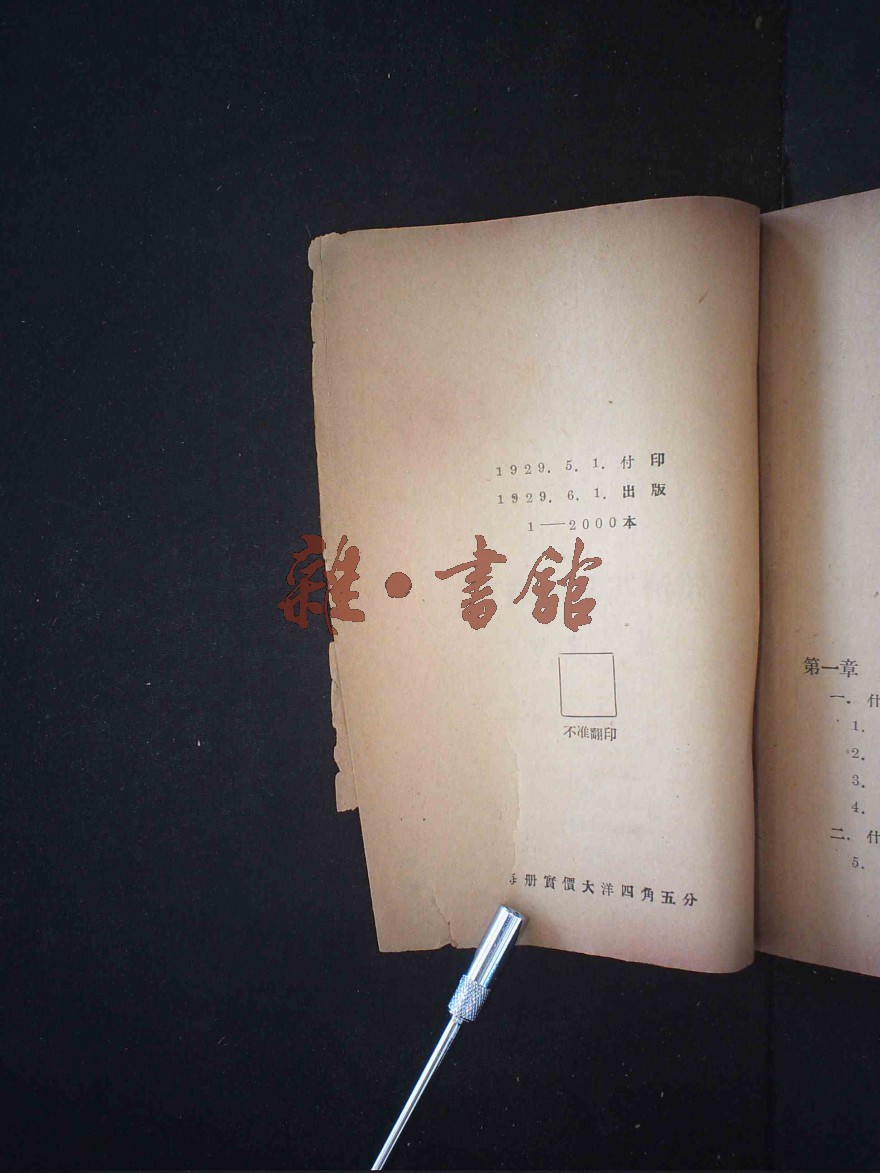 1929. 5. 1. 付印
1929. 6. 1. 出版
1——2000本
雜·書館
不准翻印
每册實價大洋四角五分
第一章
一. 什
1.
2.
3.
4.
二. 什
5.